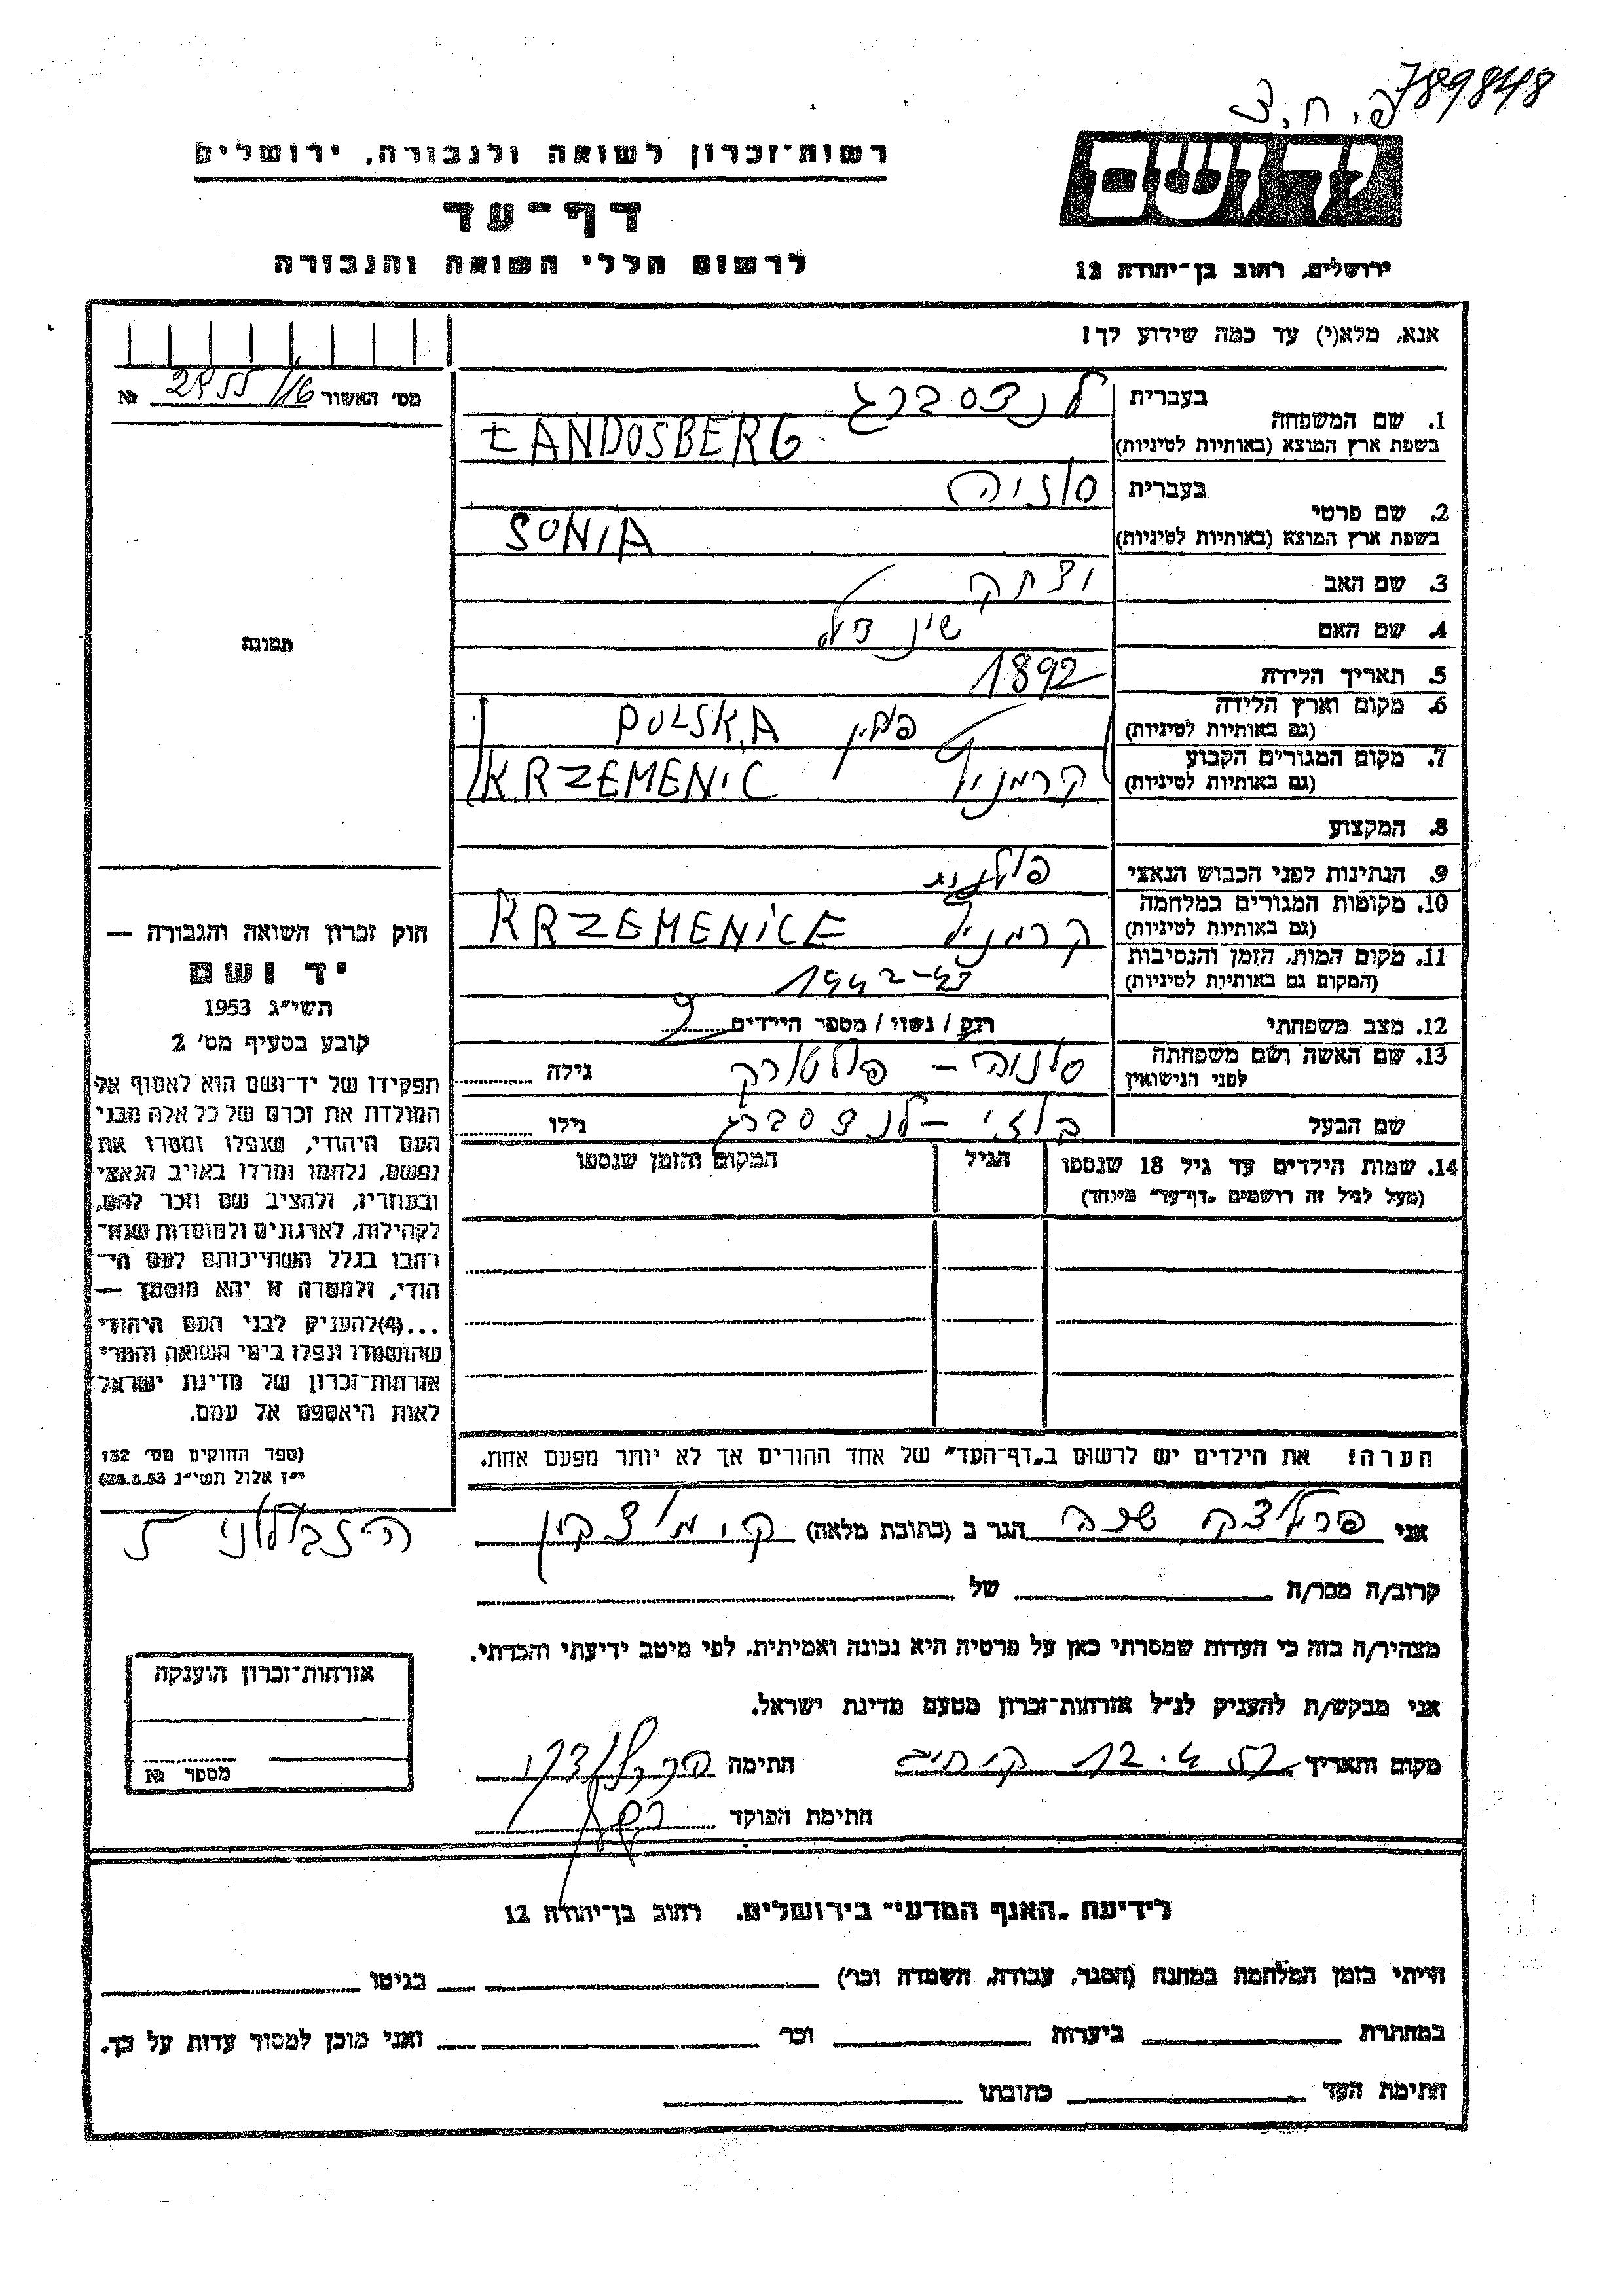 789848
פ. ח. צ.
יד ושם
ירושלים, רחוב בן־יהודה 12
רשות־זכרון לשואה ולגבורה, ירושלים
דף־עד
לרשום חללי השואה והגבורה
אנא, מלא(י) עד כמה שידוע לך!
מס׳ האשור 2955/16 №
תמונה
1. שם המשפחה
בעברית לנדסברג
בשפת ארץ המוצא (באותיות לטיניות) ŁANDOSBERG
2. שם פרטי
בעברית סוניה
בשפת ארץ המוצא (באותיות לטיניות) SONIA
3. שם האב יצחק
4. שם האם שיינדל
5. תאריך הלידה 1892
6. מקום וארץ הלידה פולין POLSKA
(גם באותיות לטיניות)
7. מקום המגורים הקבוע קרמניץ KRZEMENIC
(גם באותיות לטיניות)
8. המקצוע
9. הנתינות לפני הכבוש הנאצי פולנית
10. מקומות המגורים במלחמה קרמניץ KRZEMENICE
(גם באותיות לטיניות)
11. מקום המות, הזמן והנסיבות 1942-43
(המקום גם באותיות לטיניות)
12. מצב משפחתי רווק / נשוי / מספר הילדים
13. שם האשה ושם משפחתה סוניה – גילה
לפני הנישואין
שם הבעל – לנדסברג גילו
14. שמות הילדים עד גיל 18 שנספו הגיל המקום והזמן שנספו
(מעל לגיל זה רושמים „דף־עד״ מיוחד)
הערה! את הילדים יש לרשום ב„דף־העד״ של אחד ההורים אך לא יותר מפעם אחת.
חוק זכרון השואה והגבורה —
יד ושם
תשי״ג 1953
קובע בסעיף מס׳ 2
תפקידו של יד־ושם הוא לאסוף אל
המולדת את זכרם של כל אלה מבני
העם היהודי, שנפלו ומסרו את
נפשם, נלחמו ומרדו באויב הנאצי
ובעוזריו, ולהציב שם וזכר להם,
לקהילות, לארגונים ולמוסדות שנח־
רבו בגלל השתייכותם לעם הי־
הודי, ולמטרה זו יהא מוסמך —
...(4)להעניק לבני העם היהודי
שהושמדו ונפלו בימי השואה והמרי
אזרחות־זכרון של מדינת ישראל
לאות היאספם אל עמם.
(ספר החוקים מס׳ 132
י״ז אלול תשי״ג 28.8.53)
אני הגר ב (כתובת מלאה) ק. מוצקין
קרוב/ה מכר/ה של
מצהיר/ה בזה כי העדות שמסרתי כאן על פרטיה היא נכונה ואמיתית, לפי מיטב ידיעתי והכרתי.
אני מבקש/ת להעניק לנ״ל אזרחות־זכרון מטעם מדינת ישראל.
מקום ותאריך 12.4.57 חתימה
חתימת הפוקד
אזרחות־זכרון הוענקה
מספר №
לידיעת „האגף המדעי״ בירושלים. רחוב בן־יהודה 12
הייתי בזמן המלחמה במחנה (הסגר, עבודה, השמדה וכו׳) בגיטו
במחתרת ביערות וכו׳ ואני מוכן למסור עדות על כך.
חתימת העד כתובתו